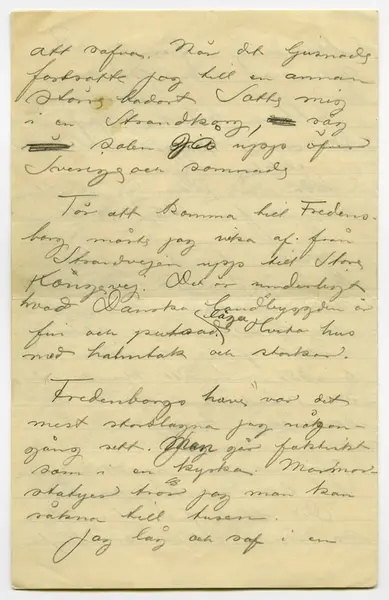 att sofva. När det ljusnade
fortsatte jag till en annan
större badort. Satte mig
i en Strandkorg, såg
solen gå upp öfver
Sverige och somnade
För att komma till Fredens-
borg måste jag vika af från
Strandvejen upp till Store
Kongevej. Det är underligt
hvad Danska Landbyggden är
fin och putsad. låga Hvita hus
med halmtak och storkar.
"Fredenborgs have" var det
mest storslagna jag någon-
gång sett. Man går faktiskt
som i en kyrka. Marmor-
statyer tror jag man kan
räkna till tusen.
Jag låg och sof i en